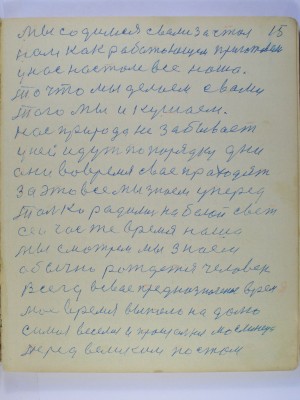 15
Мы содимся с вами за стол
нам как работающем приготовлен
у нас на столе все наша.
То что мы делаем с вами
того мы и кушаем.
нас природа не забывает
у ней идут по порядку дни
они вовремя свае праходят
За это все мы знаем у перед
Только радились на белой свет
сейчас те время наша
мы смотрем мы знаем
обычно рождается человек
Всегда в свае предназначение время
мое время выпало на долю
самая веселая прощенная масленица
перед великим постом